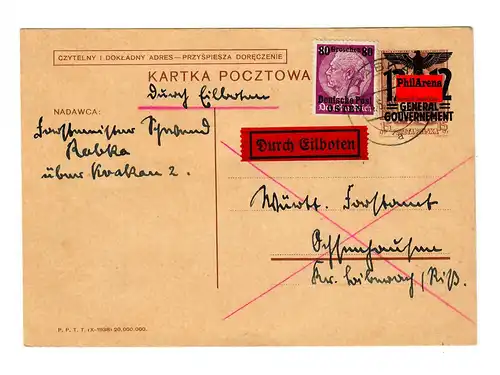 CZYTELNY I DOKŁADNY ADRES—PRZYŚPIESZA DORĘCZENIE
KARTKA POCZTOWA
Durch Eilboten
80 Groschen 80
Deutsche Post
OSTEN
PhilArena
12
GENERAL
GOUVERNEMENT
NADAWCA:
Forstmeister Schwend
Rabka
über Krakau 2.
Durch Eilboten
Württ. Forstamt
Ochsenhausen
Kr. Biberach/Riß.
P. P. T. T. (X-1938) 20.000.000.